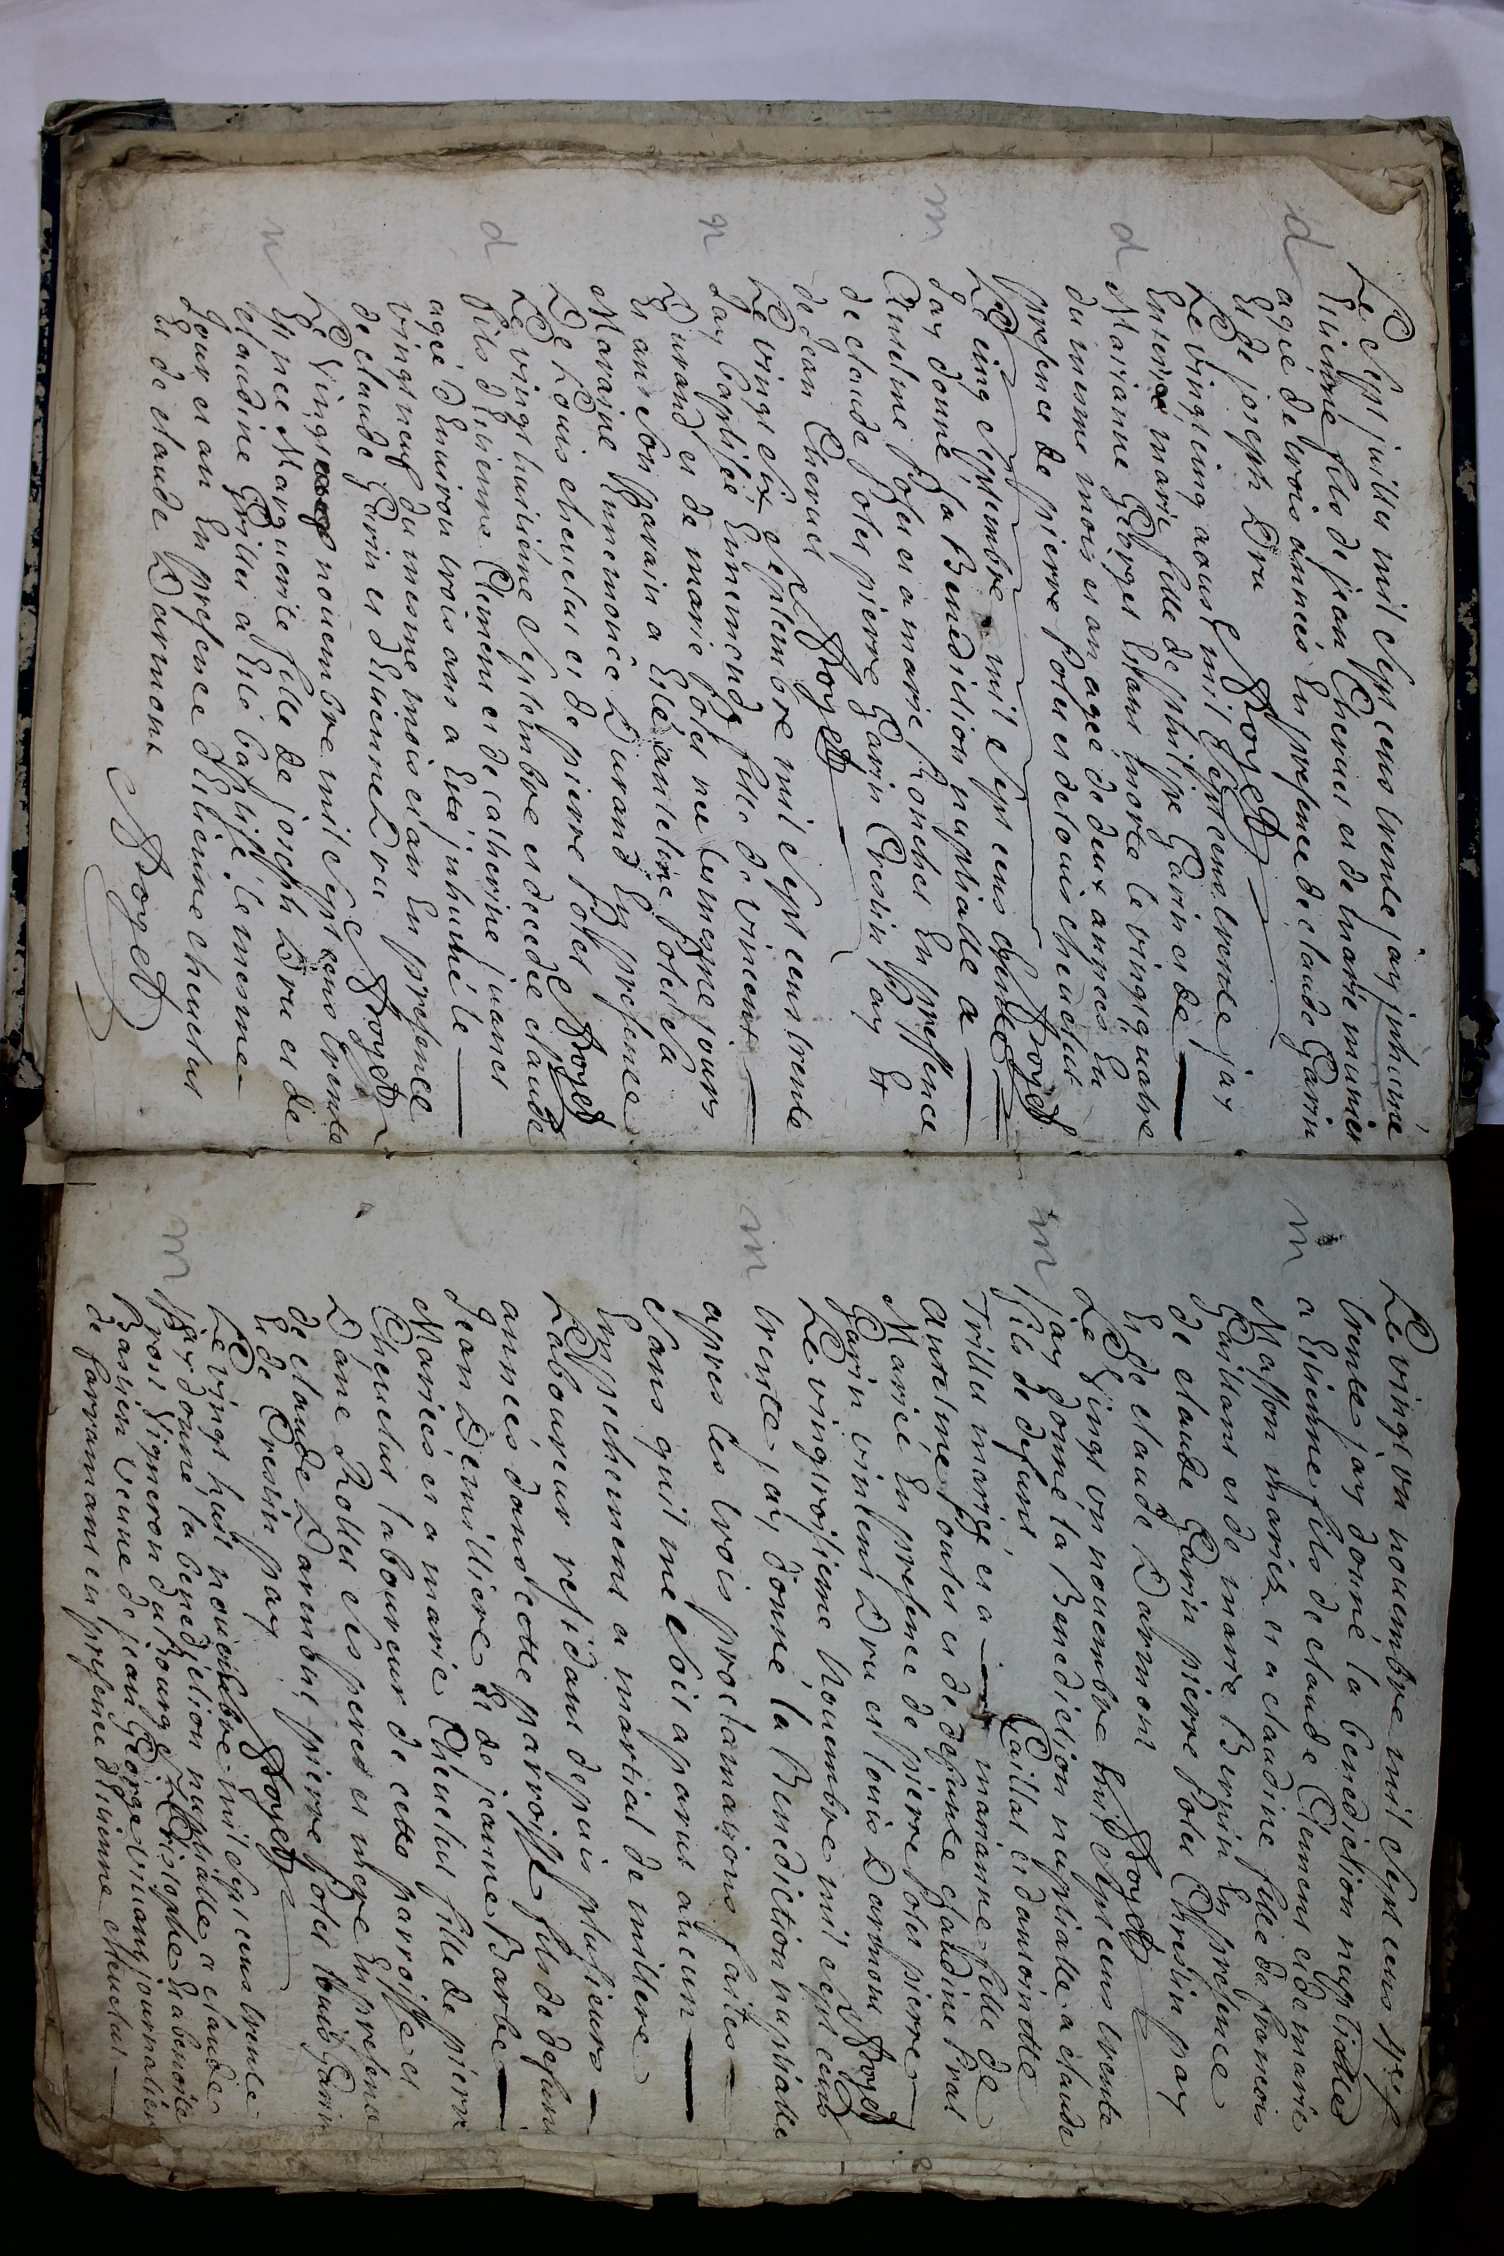 Le sept juillet mil sept cens trente jay jnhumé
Etienne fils de jean Cheruet et de marie munier
d
agée de trois années En presence de claude Garin
Et de joseph Dru
Royet
Le vingt cinq aoust mil sept cens trente jay
Enterré marie fille de philipe Garin et de
d
Marianne Georget Estant morte le vingt quatre
du mesme mois et an agée de deux années En
presence de pierre Potet et de louis cheuelut
Royet
Le cinq septembre mil sept cens
m
jay donné la Benediction nuptialle a
Antelme Potet et a marie Ronchet En presence
de claude Potet pierre Garin Crestin pay Et
de jean Cheruet
Royet
Le vingt six septembre mil sept cens trente
n
Jay baptisé fille de vincent
Durand et de marie Potet née les mesme jours
Et an son Parain a Esté antelme Potet sa
Maraine Durand En presence
De Louis cheuelut et de pierre Potet
Royet
Le vingt huitiéme septembre est decedée claude
d
fils d'Etienne Clement et de catherine juanet
agée d'Enuiron trois ans a Esté jnhumé le
vingt neuf du mesme mois et an En presence
de claude Garin et d'Etienne Dru
Royet
Le vingt nouembre mil sept cens trente
n
Est nee Marguerite fille de joseph Dru et de
claudine Grillet a Esté baptisé le mesme
Jour et an En presence d'Etienne cheuelut
Et de claude Darmont
Royet
Le vingt vn nouembre mil sept cens
trente jay donné la benediction nuptialles
m
a Etienne fils de claude Clement et de marie
Masson mariez et a claudine fille de francois
Gaillant et de marie Berrin En presence
de claude Garin pierre Potet Chrestin pay
Et de claude Darmont
Royet
Le vingt vn nouembre mil sept cens trente
m
jay donné la Benediction nuptialle a claude
fils de defunt Caillat et d'antoinette
Trillet mariez et a marianne fille de
Antelme Poutet et de defunte claudine Prat
Marié En presence de pierre Potet pierre
Garin vincent Dru et louis Darmont
Royet
Le vingt troisieme Nouembre mil sept cens
m
trente jay donné la Benediction nuptialle
apres les trois proclamations faites
sans quil me soit aparut aucun
Empechement a martial de millere
Laboureur residant depuis plusieurs
années dans cette paroisse fils de defunt
Jean Demilliere Et de jeanne Barbe
Mariés et a marie Cheuelut fille de pierre
Cheuelut laboureur de cette parroisse et
Dame Rollet ses peres et mere En presence
de claude Darmont pierre Potet louis Garin
Et de Crestin pay
Royet
Le vingt huit nouembre mil sept cens trente
m
jay donné la benediction nuptialle a claude
Gros Vigneron du Bourg St Cristophe Et a benoite
Rauier veuue de jean George viuant journallier
de parramant en presence d'Etienne cheuelut